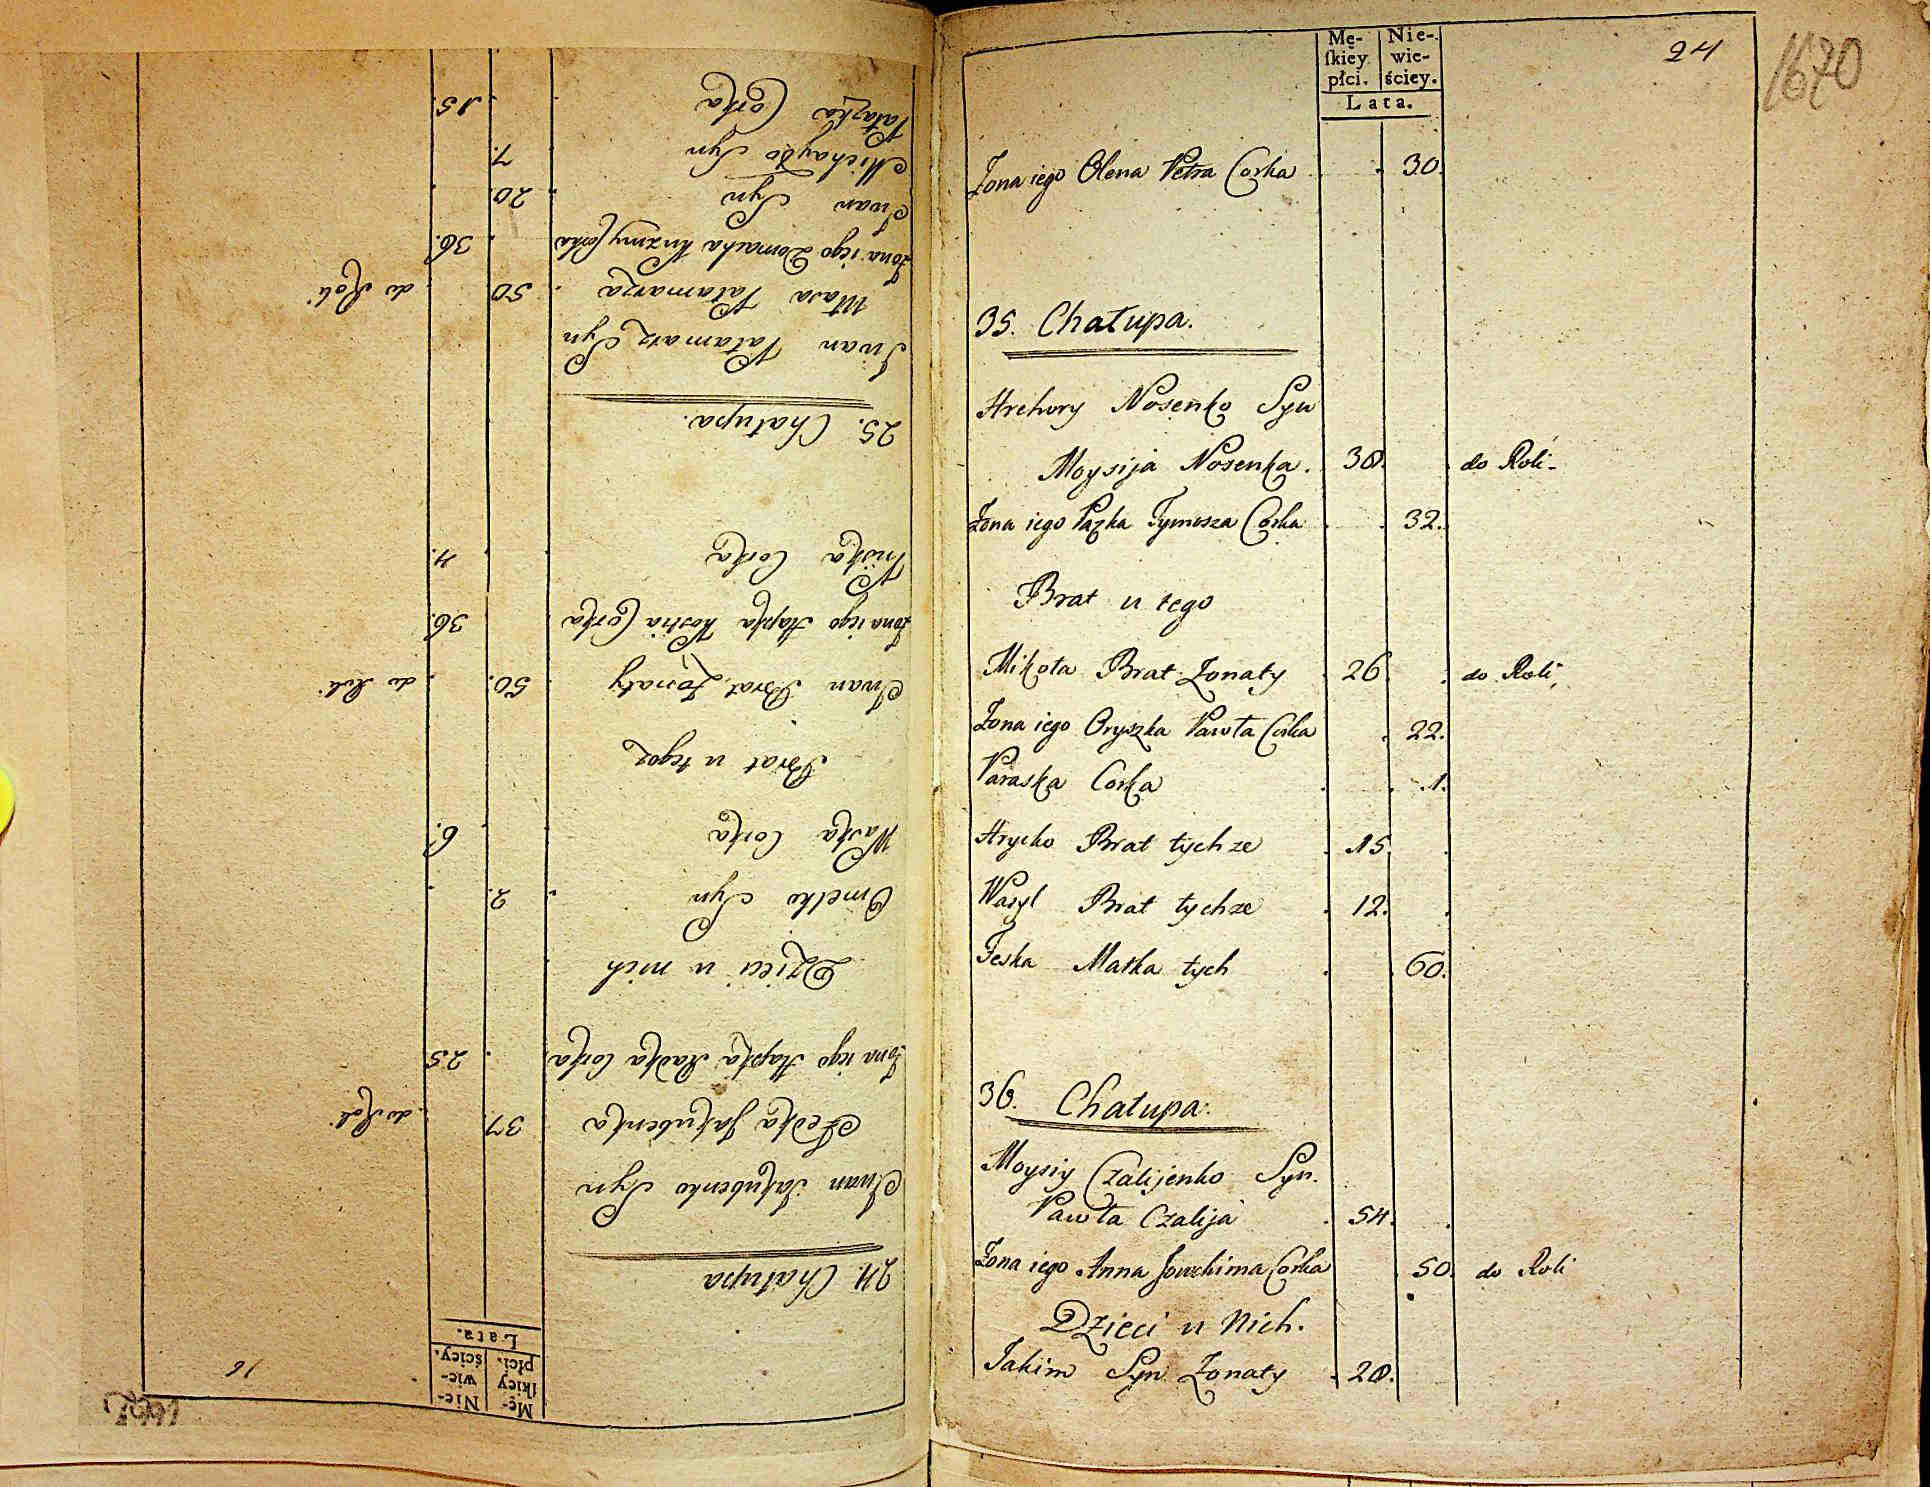 16
Mę-
ſkiey
płci.
Nie-
wie-
ściey.
Lata.
24. Chałupa
Iwan Jakubenko Syn
Fedka Jakubenka 37. do Roli
Zona iego Hapka Radka Corka 25
Dzieci u nich
Omelko Syn 2.
Waska Corka 6.
Brat u tegoz
Iwan Brat Zonaty 50. do Roli
Zona iego Hapka Kostia Corka 36.
Corka 4.
25. Chałupa.
Iwan Pałamarz Syn
Własa Pałamarza 50 do Roli
Zona iego Domacha Kuzmy Corka 36.
Iwan Syn 20
Michayło Syn 7.
Pałazka Corka 15.
24
1670
Mę-
ſkiey
płci.
Nie-
wie-
ściey.
Lata.
Zona iego Olena Petra Corka 30.
35. Chałupa.
Hrehory Nosenko Syn
Moysija Nosenka. 38. do Roli
Zona iego Pazka Tymosza Corka 32.
Brat u tego
Mikoła Brat Zonaty 26 do Roli
Zona iego Oryszka Pawła Corka 22.
Paraska Corka 1.
Hrycko Brat tychze 15.
Wasyl Brat tychze 12.
Feska Matka tych 60.
36. Chałupa.
Moysiy Czalijenko Syn.
Pawła Czalija 54.
Zona iego Anna Jowchima Corka 50. do Roli
Dzieci u Nich.
Jakim Syn Zonaty 28.